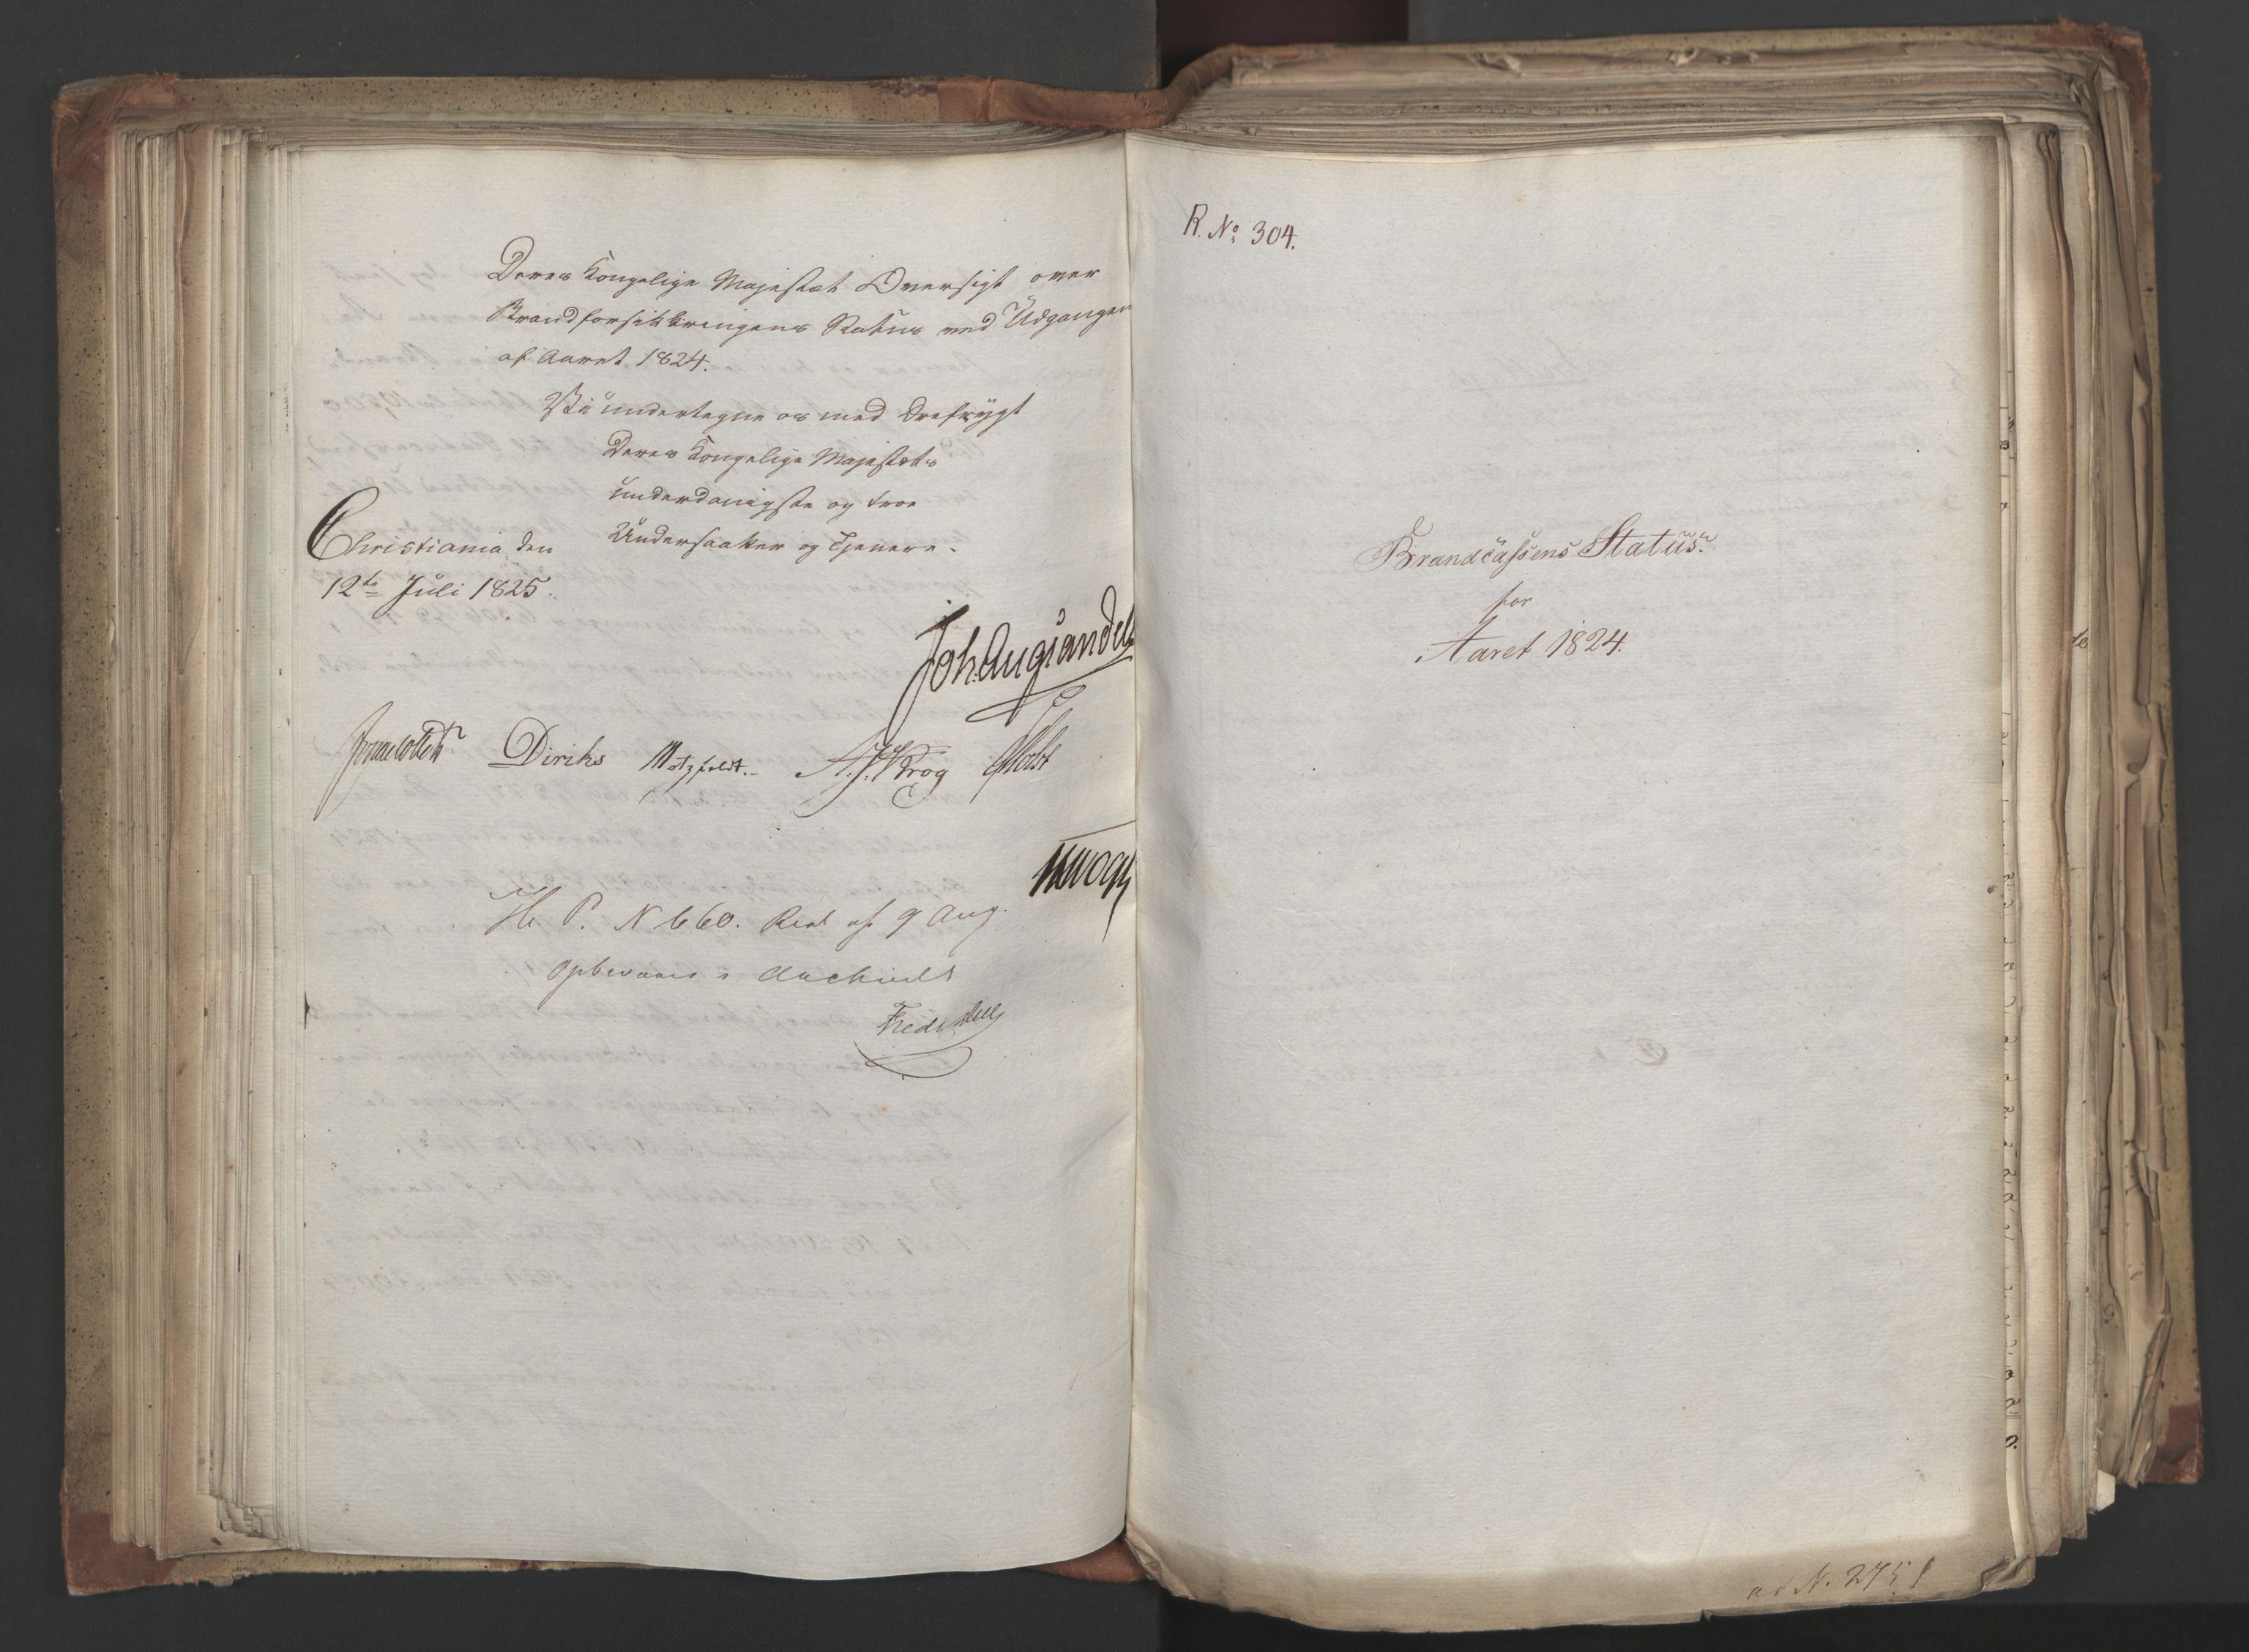 Deres Kongelige Majestæt Oversigt over
Brandforsikkringens Status ved Udgangen
af Aaret 1824.
Vi undertegne os med Ærefrygt
Deres Kongelige Majestæts
underdanigste og troe
Undersaatter og Tjenere.
Christiania den
12te Juli 1825.
Joh. Aug. Sandels
Diriks Motzfeldt. A. J. Krog Holst
H. P. N 660. Res af 9 Aug.
Opbevares i Archivet
R. No 304.
Brandcassens Status
for
Aaret 1824.
ad N. 275